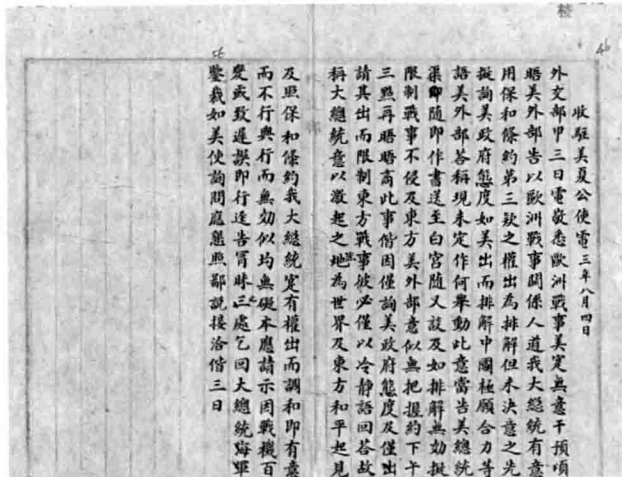 收駐美夏公使電 三年八月四日
外交部甲三日電敬悉歐洲戰事美定無意干預頃
晤美外部告以歐洲戰事關係人道我大總統有意
用保和條約第三欵之權出為排解但未決意之先
擬詢美政府態度如美出而排解中國極願合力等
語美外部荅稱現未定作何舉動此意當告美總統
渠即隨即作書送至白宮隨又談及如排解無効擬
限制戰事不侵及東方美外部意似無把握約下午
三點再晤晤商此事偕因僅詢美政府態度及僅出
請其出而限制東方戰事彼必僅以冷靜語回荅故
稱大總統意以激起之地為世界及東方和平起見
及照保和條約我大總統寔有權出而調和即有意
而不行與行而無効似均無礙本應請示因戰機百
變或致遲誤即行逹告冒昧之處乞回大總統海軍
鑒裁如美使詢問庭懇照鄙説接洽偕三日
56
46